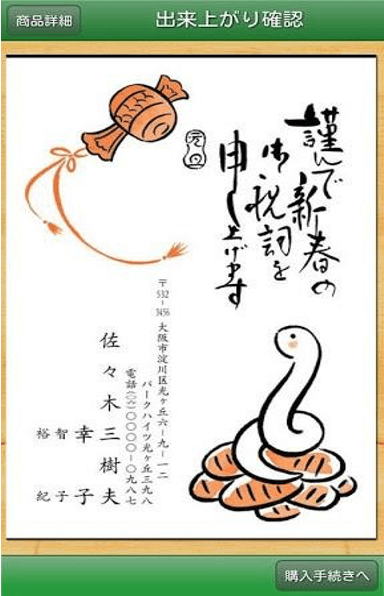 商品詳細
出来上がり確認
謹んで新春の
御祝詞を
申し上げます
元旦
〒532-3456
大阪市淀川区光ヶ丘六-九-一二
パークハイツ光ヶ丘三九八
電話(〇六)〇〇〇〇-〇九八七
佐々木三樹夫
幸子
智子
裕紀
購入手続きへ